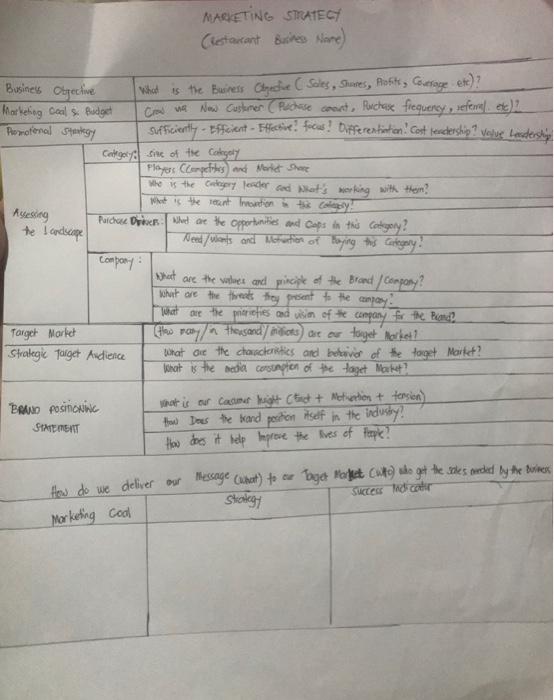 MARKETING STRATEGY
(Restaurant Business Name)
Business Objective What is the Business Objective (Sales, Shares, Profits, Coverage etc)?
Marketing Goal & Budget Grow via New Customer (Purchase amount, Purchase frequency, referral. etc)?
Promotional Strategy Sufficiently - Efficient - Effective? focus? Differentiation? Cost leadership? Value Leadership
Assessing the Landscape
Category: Size of the Category
Players (Competitors) and Market Share
Who is the Category leader and What's working with them?
What is the recent Innovation in this category?
Purchase Drivers: What are the opportunities and Gaps in this Category?
Need/Wants and Motivation of Buying this Category?
Company:
What are the values and principle of the Brand / Company?
What are the threats they present to the company?
What are the priorities and vision of the company for the Brand?
Target Market (How many/in thousand/millions) are our target Market?
Strategic Target Audience What are the characteristics and behavior of the target Market?
What is the media consumption of the target Market?
BRAND POSITIONING
STATEMENT
What is our Consumer Insight (Fact + Motivation + tension)
How Does the brand position itself in the industry?
How does it help Improve the lives of People?
How do we deliver our Message (what) to our Target Market (who) who get the sales needed by the business
Marketing Goal Strategy Success Indicator